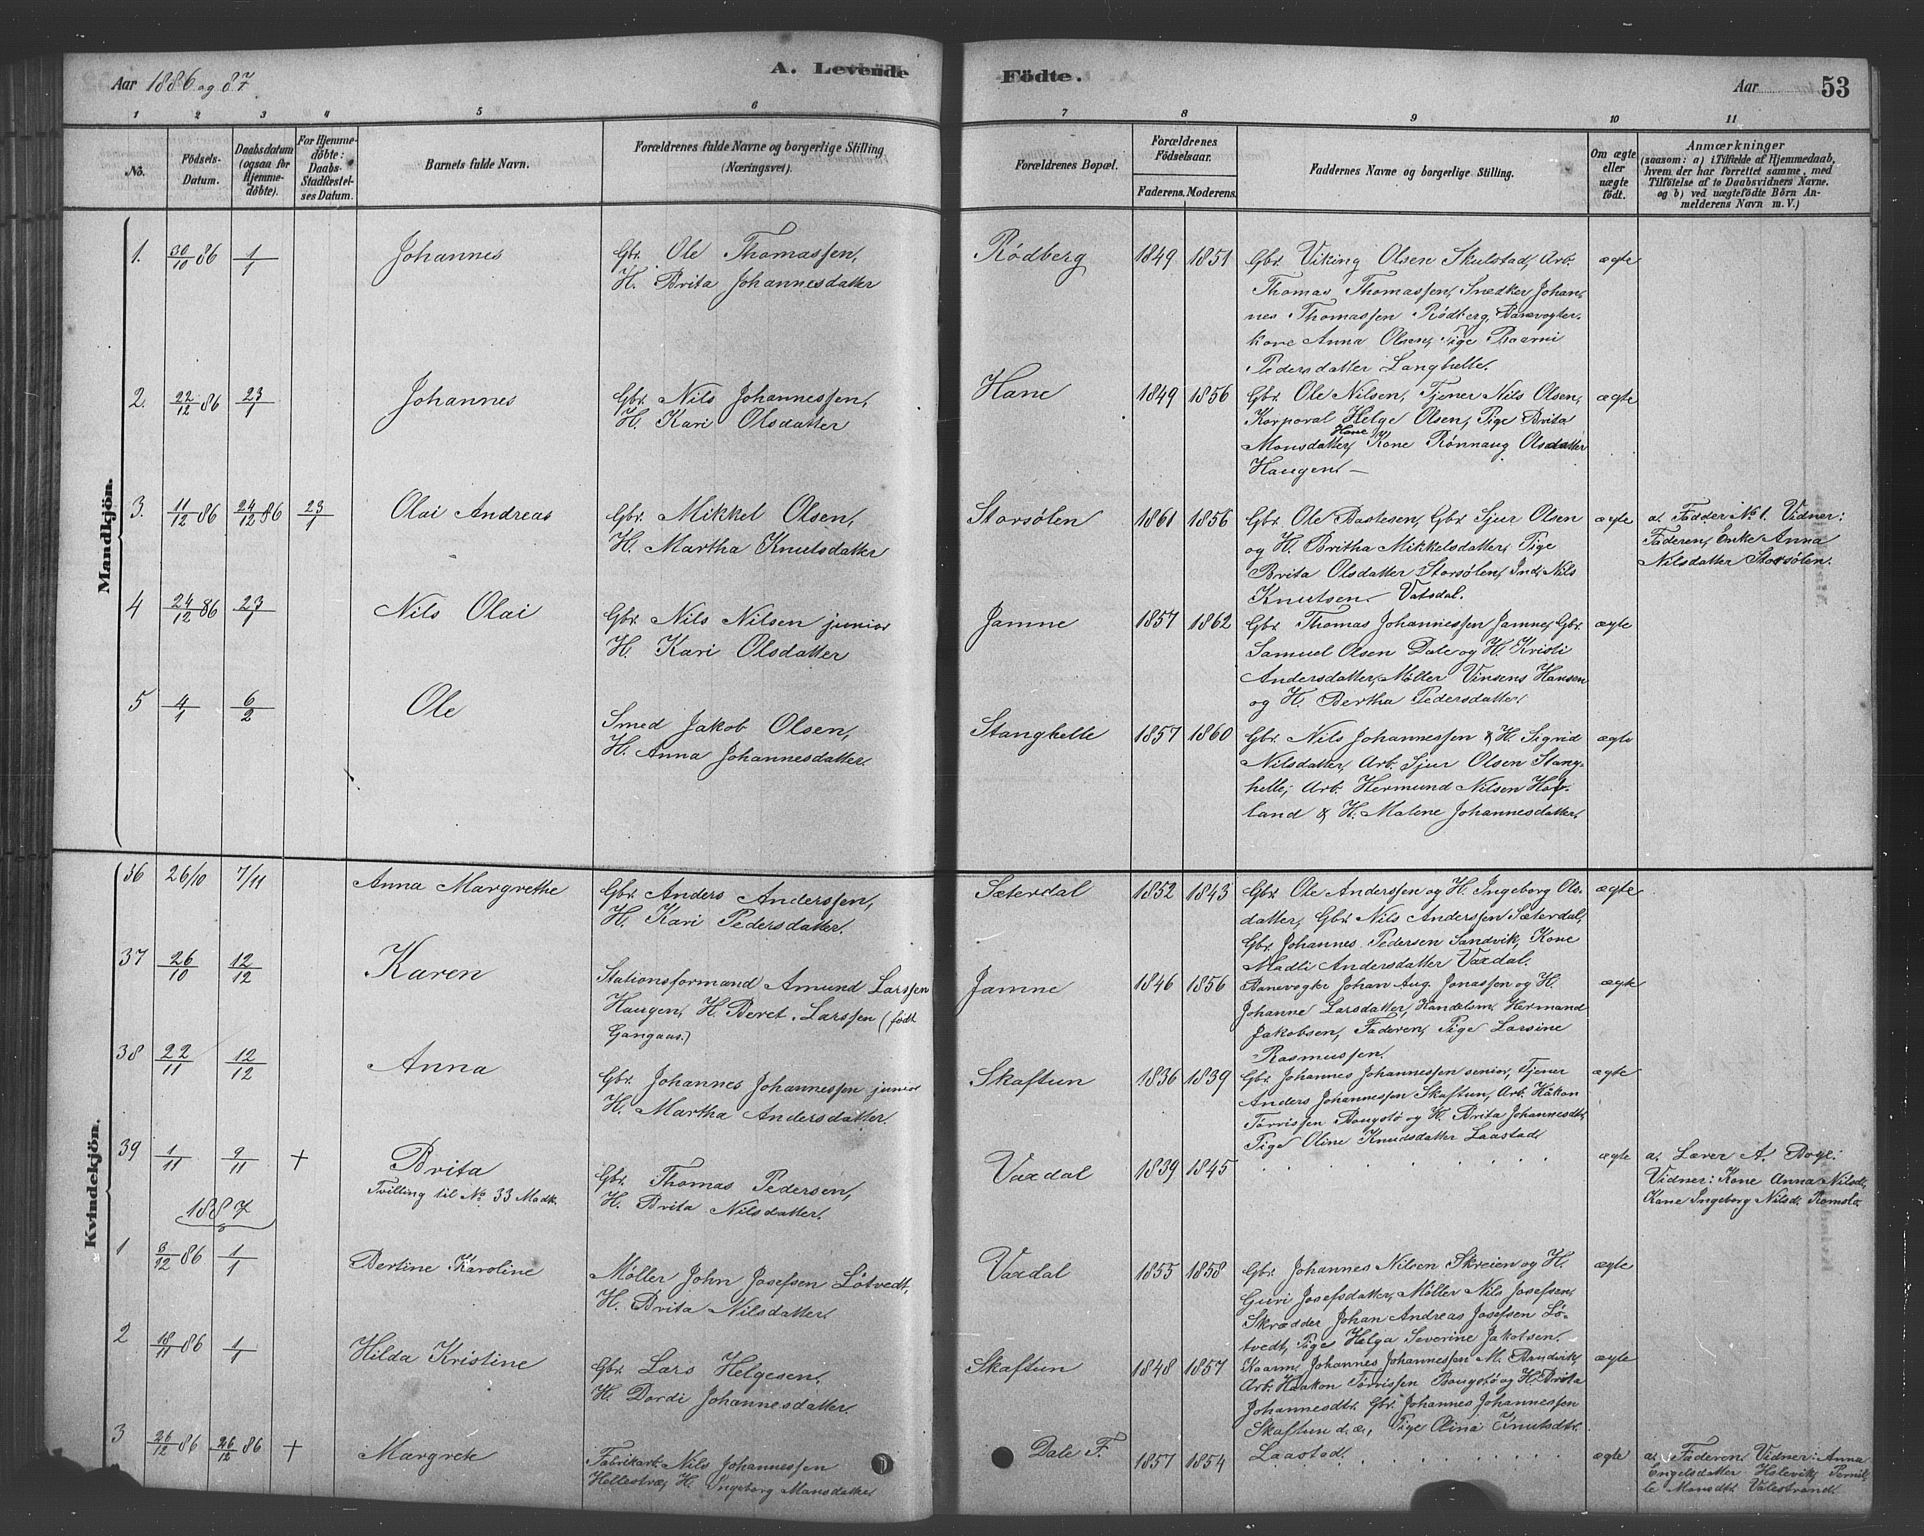 Aar 1886 og 87.
A. Levende
Födte.
Aar
53
1 2 3 4 5 6 7 8 9 10 11
No.
Födsels-Datum.
Daabsdatum (ogsaa for Hjemmedöbte).
For Hjemmedöbte: Daabs-Stadfæstelses Datum.
Barnets fulde Navn.
Forældrenes fulde Navne og borgerlige Stilling (Næringsvei).
Forældrenes Bopæl.
Forældrenes Födselsaar.
Faderens. Moderens.
Faddernes Navne og borgerlige Stilling.
Om ægte eller uægte födt.
Anmærkninger
(saasom: a) i Tilfælde af Hjemmedaab, hvem der har forrettet samme, med Tilföielse af to Daabsvidners Navne. og b) ved uægtefödte Börn Anmelderens Navn m. V.)
Mandkjön.
1. 30/10 86 1/1 Johannes
Gbr. Ole Thomassen,
H. Brita Johannesdatter
Rödberg 1849 1851
Gbr. Viking Olsen Skulstad, Arb.
Thomas Thomassen, Snedker Johan,
nes Thomassen Rödberg, Banevogter,
kone Anna Olsen, Pige Baarni
Pedersdatter Langhelle.
ægte
2. 22/12 86 23/1 Johannes
Gbr. Nils Johannessen,
H. Kari Olsdatter
Hane 1849 1856
Gbr. Ole Nilsen, Tjener Nils Olsen,
Korporal Helge Olsen, Pige Brita
Monsdatter Hane, Kone Rönnaug Olsdatter
Haugen. —
ægte
3. 11/12 86 24/12 86 23/1 Olai Andreas
Gbr. Mikkel Olsen,
H. Martha Knutsdatter
Storsölen 1861 1856
Gbr. Ole Bastesen, Gbr Sjur Olsen
og H. Britha Mikkelsdatter, Pige
Brita Olsdatter Storsölen, Ind. Nils
Knutsen Vatsdal.
ægte
a. Fadder No 1. Vidner:
Faderen, Enke Anna
Nilsdatter Storsölen.
4 24/12 86 23/1 Nils Olai
Gbr. Nils Nilsen junior
H. Kari Olsdatter
Jamne 1857 1862
Gbr. Thomas Johannessen Jamne, Gbr.
Samuel Olsen Dale og H. Kristi
Andersdatter, Møller Vinsens Hansen
og H. Bertha Pedersdatter.
ægte
5 4/1 6/2 Ole
Smed Jakob Olsen,
H. Anna Johannesdatter.
Stanghelle 1857 1860
Gbr. Nils Johannessen & H. Sigrid
Nilsdatter, Arb. Sjur Olsen Stang-
helle, Arb. Hermund Nilsen Hof-
land & H. Malene Johannesdatter.
ægte
Kvindekjön.
36 26/10 7/11 Anna Margrethe
Gbr. Anders Anderssen,
H. Kari Pedersdatter.
Sæterdal 1852 1843
Gbr. Ole Anderssen og H. Ingeborg Ols-
datter, Gbr. Nils Anderssen Sæterdal,
Gbr. Johannes Pedersen Sandvik, Kone
Madli Andersdatter Vaxdal.
ægte
37 26/10 12/12 Karen
Stationsformand Amund Larssen
Haugen, H. Beret Larssen (født
Gangaas.)
Jamne 1846 1856
Banevogter Johan Aug. Jonassen og H.
Johanne Larsdatter, Handelsm. Hermand
Jakobsen, Faderen, Pige Larsine
Rasmussen.
ægte
38 22/11 12/12 Anna
Gbr. Johannes Johannessen junior
H. Martha Andersdatter.
Skaftun 1836 1839
Gbr. Johannes Johannessen senior, Tjener
Anders Johannessen Skaftun, Arb. Håkon
Torrissen Bougstø og H. Brita Johannesdt.
Pige Oline Knudsdatter Laastad.
ægte
39 1/11 9/11 + Brita
Tvilling til No 33 Mandk.
Gbr. Thomas Pedersen,
H. Brita Nilsdatter.
Vaxdal 1839 1845
ægte
a. Lærer A. Boge.
Vidner: Kone Anna Nilsdt,
Kone Ingeborg Nilsd.
1887
1 3/12 86 1/1 Bertine Karoline
Møller John Josefsen Løtvedt,
H. Brita Nilsdatter.
Vaxdal 1855 1858
Gbr. Johannes Nilsen Skreien og H.
Guri Josefsdatter, Møller Nils Josefsen,
Skrædder Johan Andreas Josefsen Lø-
tvedt, Pige Helga Severine Jakobsen.
ægte
2 18/11 86 1/1 Hilda Kristine
Gbr. Lars Helgesen.
H. Dordi Johannesdatter.
Skaftun 1848 1857
Kaarm. Johannes Johannessen M. Brudvik,
Arb. Haakon Torrissen Bougstø og H. Brita
Johannesdt. Gbr. Johannes Johannessen
Skaftun d. æ., Pige Olina Knutsdt.
Laastad.
ægte
3 26/12 86 26/12 86 + Margrete
Fabrikarb. Nils Johannessen
Hellestræ, H. Ingeborg Mansdatter
Dale F. 1857 1854
ægte
a. Faderen. Vidner: Anna
Engelsdatter Helevik, Pernil-
le Monsdt. Valestrand.